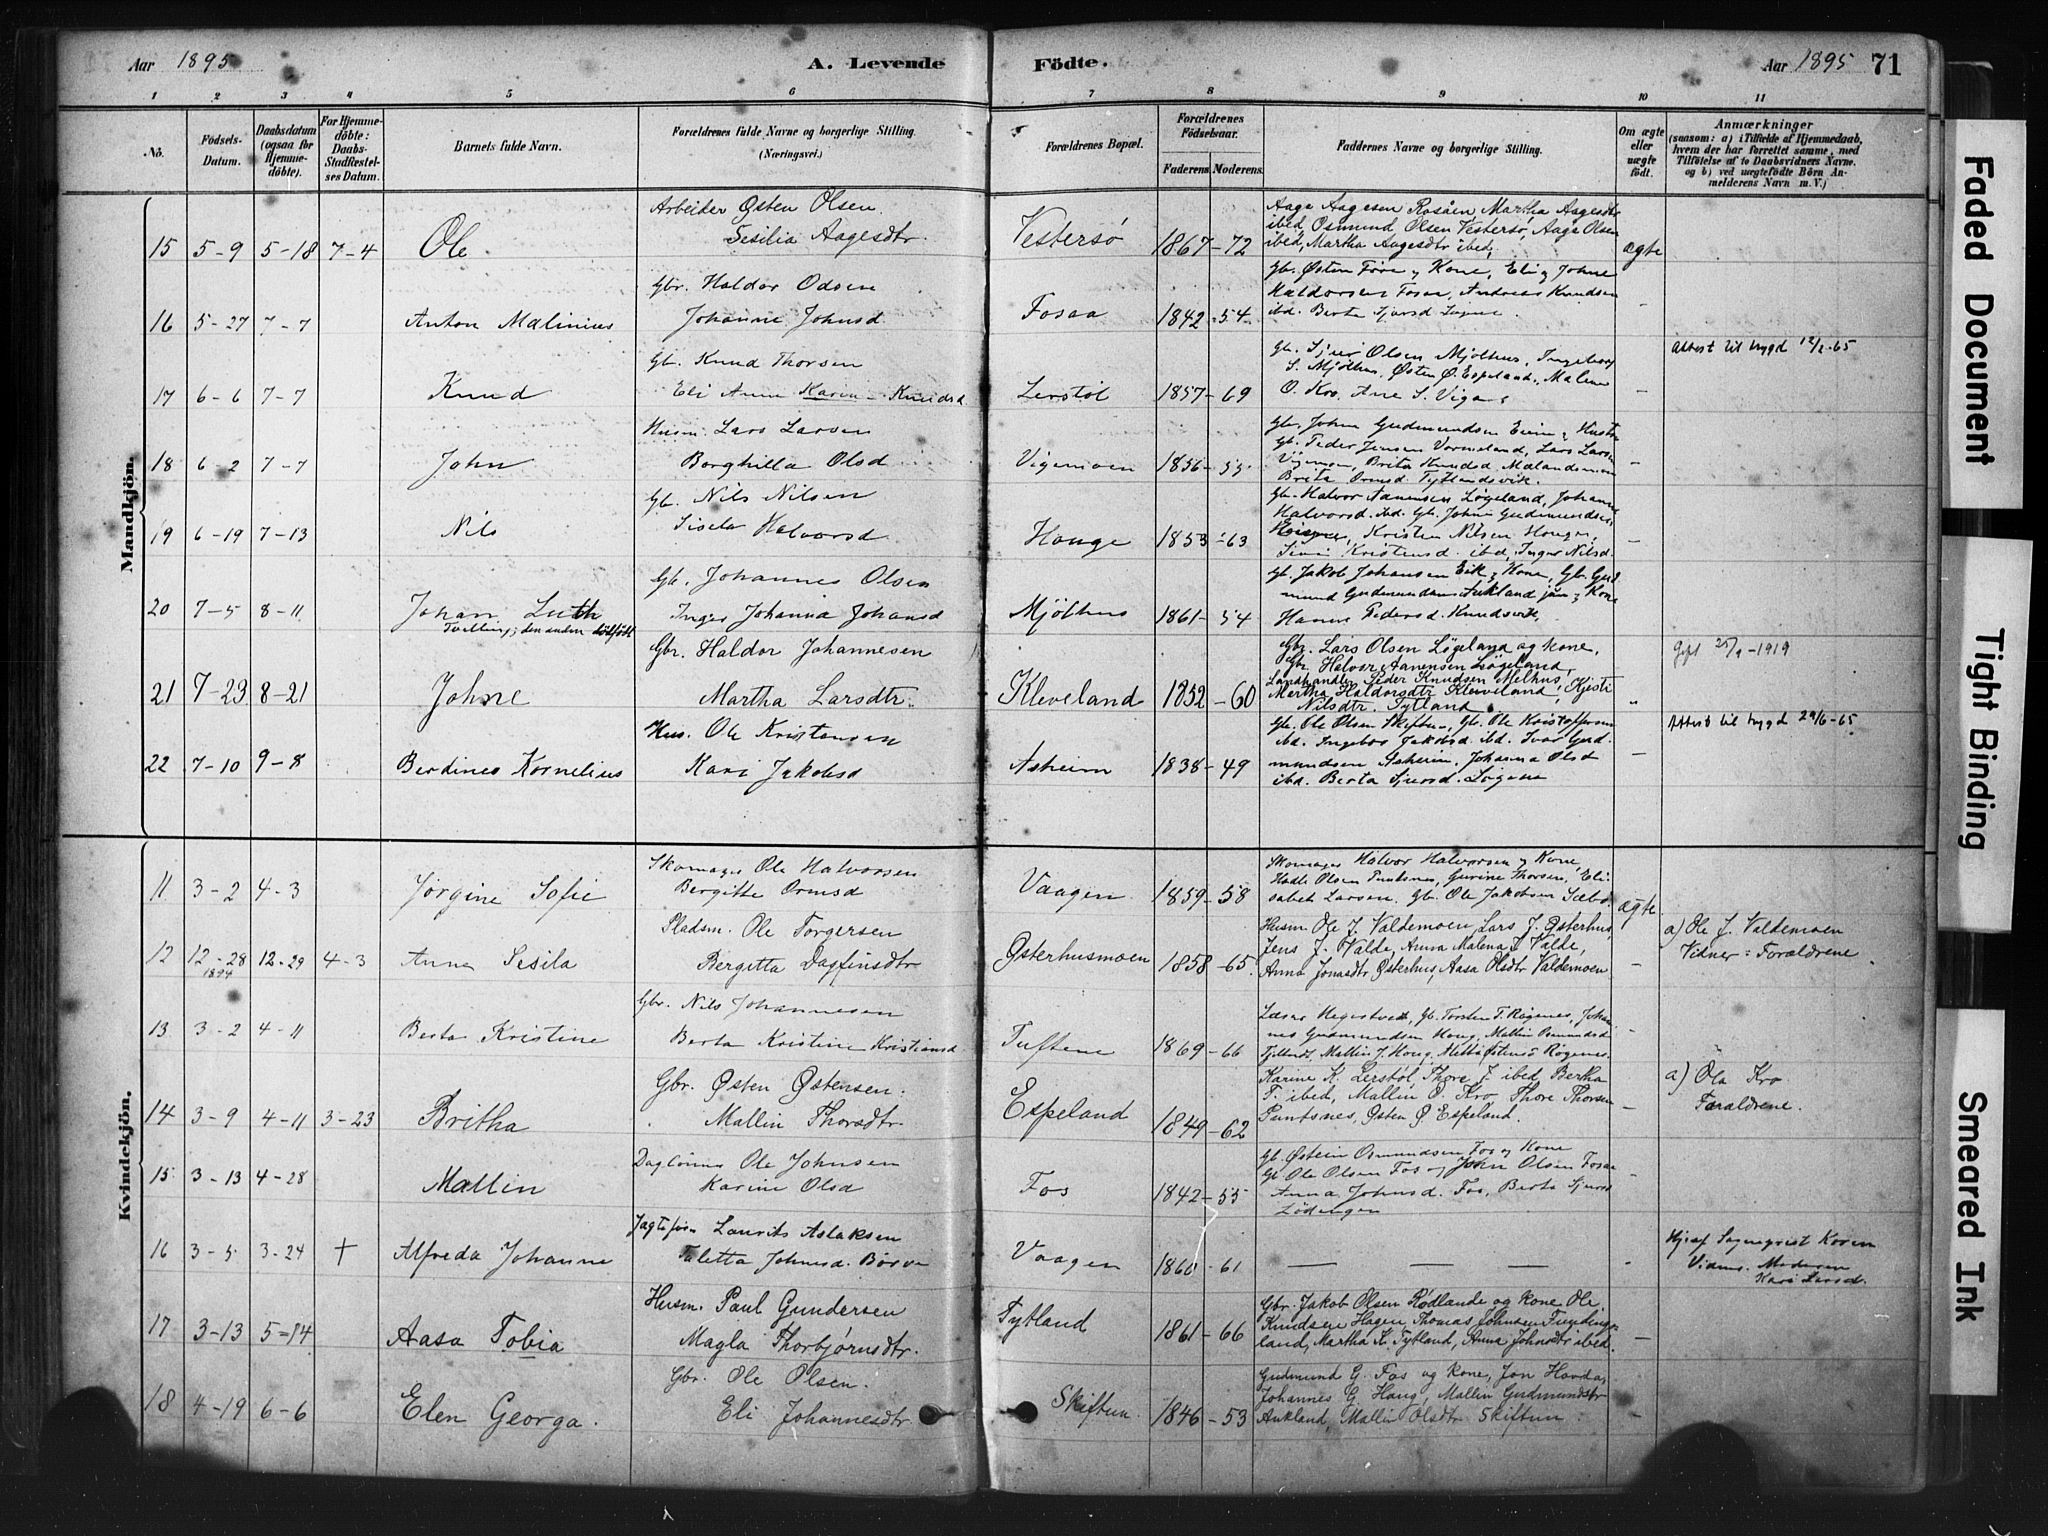 Aar 1895
A. Levende
Födte.
Aar 1895 71
1 2 3 4 5 6 7 8 9 10 11
No.
Födsels-Datum.
Daabsdatum (ogsaa for Hjemme-döbte).
For Hjemme-döbte: Daabs-Stadfæstel-ses Datum.
Barnets fulde Navn.
Forældrenes fulde Navne og borgerlige Stilling. (Næringsvei.)
Forældrenes Bopæl.
Forældrenes Födselsaar.
Faderens. Moderens.
Faddernes Navne og borgerlige Stilling.
Om ægte eller uægte födt.
Anmærkninger
(saasom: a) i Tilfælde af Hjemmedaab, hvem der har forrettet samme, med Tilföielse af to Daabsvidners Navne. og b) ved uægtefödte Börn An-melderens Navn m. V.)
Mandkjön.
Arbeider Østen Olsen
15 5-9 5-18 7-4 Ole Sesilia Aagesdtr. Vestersø 1867-72 ægte
Aage Aagesen Rosåen, Martha Aagesdtr
ibed, Osmund Olsen Vestersø, Aage Olsen
ibed, Martha Aagesdtr ibed,
Gbr. Haldor Odsen
16 5-27 7-7 Anton Malinius Johanne Johnsd Fosaa 1842-54
Haldorsen Fosaa, Andreas Knudsen
Gb. Knud Thorsen
17 6-6 7-7 Knud Eli Anne Karin Knudsd Lerstøl 1857-69
Gb. Sjur Olsen Mjølhus, Ingeborg
S. Mjølhus, Østen Ø. Espeland, Malene
O. Kro, Ane S. Vigan
Attest til trygd 12/2-65
Husm. Lars Larsen
18 6-2 7-7 John Borghilla Olsd Vigemoen 1856-55
Gb. Peder Jensen Vormeland, Lars Lars
Vigemoen, Brita Knudsd Mælandsmoen
Brita Ormsd Tytlandsvik.
Gb. Nils Nilsen
19 6-19 7-13 Nils Sisela Halvorsd Houge 1853-63
Gb. Halvor Aanensen Løgeland, Johanna
Halvorsd. ibd. Gb. John Gudmundsen
Kristen Nilsen Houge,
Siri Kristensd. ibd, Inger Nilsd.
Gb. Johannes Olsen
20 7-5 8-11 Johan Luth Inger Johanna Johansd Mjølhus 1861-54
Tvilling; den anden dödfödt
Gb. Jakob Johansen Eik & Kone, Gb. Gud
mund Gudmundsen Aukland jun & Kone
Hanne Pedersd. Knudsvik,
Gbr. Haldor Johannesen
21 7-23 8-21 Johne Martha Larsdtr. Kleveland 1852-60
Gbr. Lars Olsen Løgeland og kone,
Gbr. Halvor Aanensen Løgeland,
Landhandler Peder Knudsen Melhus,
Martha Haldorsdtr Kleveland, Kjersti
Nilsdtr. Tytland
Gift 25/9-1919
Hus. Ole Kristensen
22 7-10 9-8 Berdines Kornelius Kari Jakobsd Asheim 1838-49
Gb. Ole Olsen Skiftun, Gb. Ole Kristoffersen
ibd. Ingebor Jakobsd. ibd. Ivar Gud
mundsen Asheim, Johanna Olsd
ibd. Berta Sjursd. Løgene
Attest til trygd 29/6-65
Kvindekjön.
Skomager Ole Halvorsen
11 3-2 4-3 Jørgine Sofie Bergitte Ormsd Vaagen 1859-58 ægte
Skomager Halvor Halvorsen & Kone
Hadle Olsen Puntsnes, Gurine Thorsen, Eli
sabet Larsen, Gb. Ole Jakobsen Sæbø.
Pladsm. Ole Torgersen
12 12-28 1894 12-29 4-3 Anna Sesila Bergitta Dagfinsdtr Østerhusmoen 1858-65
Husm Ole J. Valdemoen, Lars J. Østerhus,
Jens J. Valde, Anna Malena J. Valde,
Anna Jonasdtr Østerhus, Aasa Olsdtr Valdemoen
a) Ole J. Valdemoen
Vidner: Forældrene
Gbr. Nils Johannesen
13 3-2 4-11 Berta Kristine Berta Kristine Kristiansd. Tuftene 1869-66
Lærer Hegestvedt, Gb. Torsten T. Røgenes, Johan
nes Gudmundsen Houg, Mallin Osmundsd
Gbr. Østen Østensen.
14 3-9 4-11 3-23 Britha Mallin Thorsdtr Espeland 1849-62
Karine K. Lerstøl, Thore J. ibed, Bertha
T. ibed, Mallin O. Kro, Thore Thorsen
Puntsnes, Østen Ø. Espeland.
a) Ola Kro
Forældrene.
Dagløner Ole Johnsen
15 3-13 4-28 Mallin Karine Olsd Fos 1842-55
Gb. Østein Osmundsen Fos og Kone
Gb. Ole Olsen Fos og John Olsen Fosaa
Anna Johnsd. Fos, Berta Sjursd
Lødengen
Jagtefør. Laurits Aslaksen
16 3-5 3-24 † Alfreda Johanne Taletta Johnsd. Børve Vaagen 1860-61
Hj. af Sognepræst Koren
Vidner. Moderen
Kari Larsd.
Husm. Paul Gundersen
17 3-13 5-14 Aasa Tobia Magla Thorbjørnsdtr. Tytland 1861-66
Gbr. Jakob Olsen Rødlande og kone, Ole
Knudsen Hagen, Thomas Johnsen Fundings
land, Martha K. Tytland, Anna Johnsdtr ibed.
Gbr. Ole Olsen.
18 4-19 6-6 Elen Georga. Eli Johannesdtr Skiftun 1846-53
Gudmund G. Fos og kone, Jon Hovda,
Johannes G. Houg, Mallin Gudmundsdtr
Aukland, Mallin Olsdtr Skiftun
Faded Document
Tight Binding
Smeared Ink